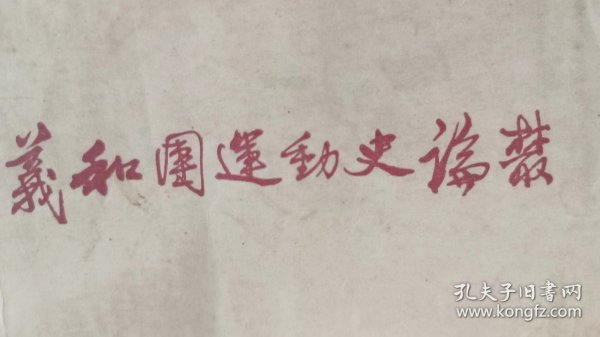 義和團運動史論叢
孔夫子旧書网
www.kongfz.com